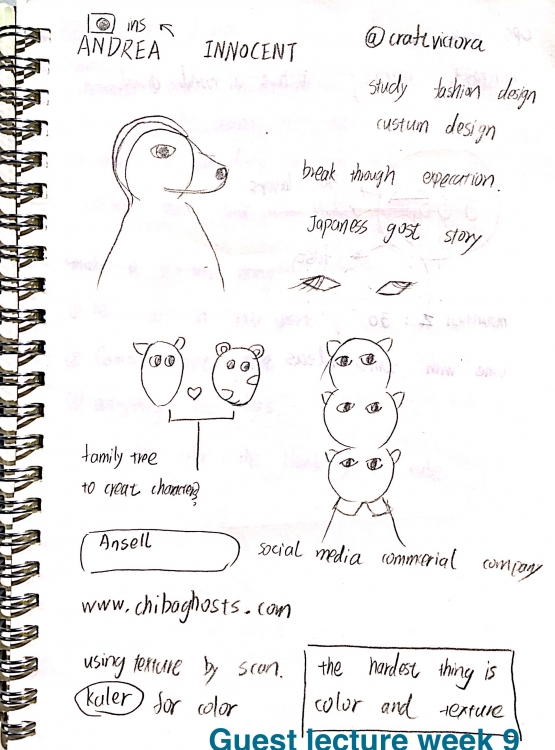 ins
ANDREA INNOCENT
@craft.victora
study fashion design
custum design
break through expecration.
Japaness gost story
family tree
to creat character?
Ansell
social media commerial company
www.chibaghosts.com
using texture by scan.
kuler for color
the hardest thing is
color and texture
Guest lecture week 9